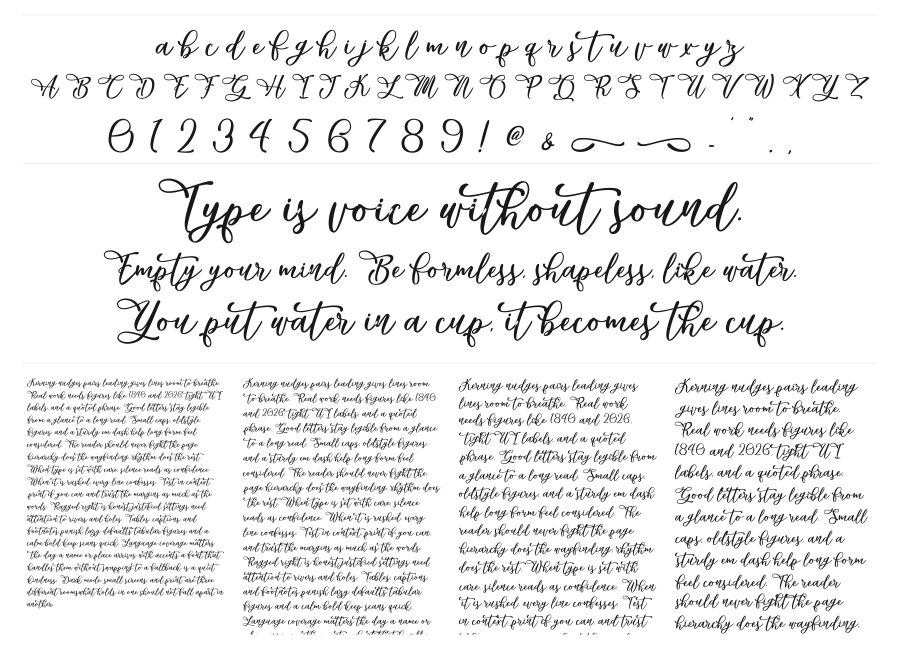 a b c d e f g h i j k l m n o p q r s t u v w x y z
A B C D E F G H I J K L M N O P Q R S T U V W X Y Z
0 1 2 3 4 5 6 7 8 9 ! @ & - ' " . ,
Type is voice without sound.
Empty your mind. Be formless, shapeless, like water.
You put water in a cup, it becomes the cup.
Kerning nudges pairs leading gives lines room to breathe.
Real work needs figures like 1840 and 2026, tight UI
labels, and a quoted phrase. Good letters stay legible
from a glance to a long read. Small caps, oldstyle
figures, and a sturdy em dash help long form feel
considered. The reader should never fight the page
hierarchy does the wayfinding, rhythm does the rest.
When type is set with care, silence reads as confidence.
When it is rushed, every line confesses. Test in context,
print if you can, and trust the margins as much as the
words. Ragged right is honest, justified settings need
attention to rivers and holes. Tables, captions, and
footnotes punish lazy defaults, tabular figures and a
calm bold keep scans quick. Language coverage matters,
the day a name or place arrives with accents, a font that
handles them without snapping to a fallback is a quiet
kindness. Dark mode, small screens, and print are three
different rooms, what holds in one should not fall apart in
another.
Kerning nudges pairs leading gives lines room
to breathe. Real work needs figures like 1840
and 2026, tight UI labels, and a quoted
phrase. Good letters stay legible from a glance
to a long read. Small caps, oldstyle figures,
and a sturdy em dash help long form feel
considered. The reader should never fight the
page hierarchy does the wayfinding, rhythm does
the rest. When type is set with care, silence
reads as confidence. When it is rushed, every
line confesses. Test in context, print if you can,
and trust the margins as much as the words.
Ragged right is honest, justified settings need
attention to rivers and holes. Tables, captions,
and footnotes punish lazy defaults, tabular
figures and a calm bold keep scans quick.
Language coverage matters, the day a name or
Kerning nudges pairs leading gives
lines room to breathe. Real work
needs figures like 1840 and 2026,
tight UI labels, and a quoted
phrase. Good letters stay legible from
a glance to a long read. Small caps,
oldstyle figures, and a sturdy em dash
help long form feel considered. The
reader should never fight the page
hierarchy does the wayfinding, rhythm
does the rest. When type is set with
care, silence reads as confidence. When
it is rushed, every line confesses. Test
in context, print if you can, and trust
Kerning nudges pairs leading
gives lines room to breathe.
Real work needs figures like
1840 and 2026, tight UI
labels, and a quoted phrase.
Good letters stay legible from
a glance to a long read. Small
caps, oldstyle figures, and a
sturdy em dash help long form
feel considered. The reader
should never fight the page
hierarchy does the wayfinding,